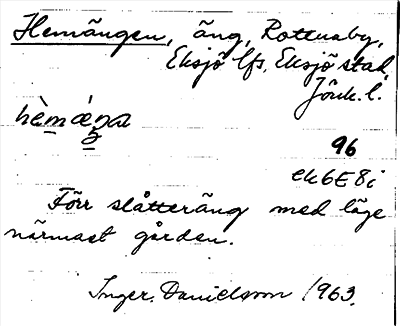 Hemängen, äng, Rottnaby,
Eksjö lfs, Eksjö stad,
Jönk. l.
96
ek6E8i
Förr slåtteräng med läge
närmast gården.
Inger Danielsson 1963.